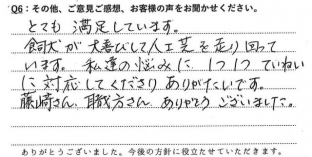 Q6：その他、ご意見ご感想、お客様の声をお聞かせください。
とても満足しています。
飼犬が大喜びして人工芝を走り回って
います。私達の悩みに1つ1つていねい
に対応してくださりありがたいです。
藤崎さん、職方さん、ありがとうございました。
ありがとうございました。今後の方針に役立たせていただきます。